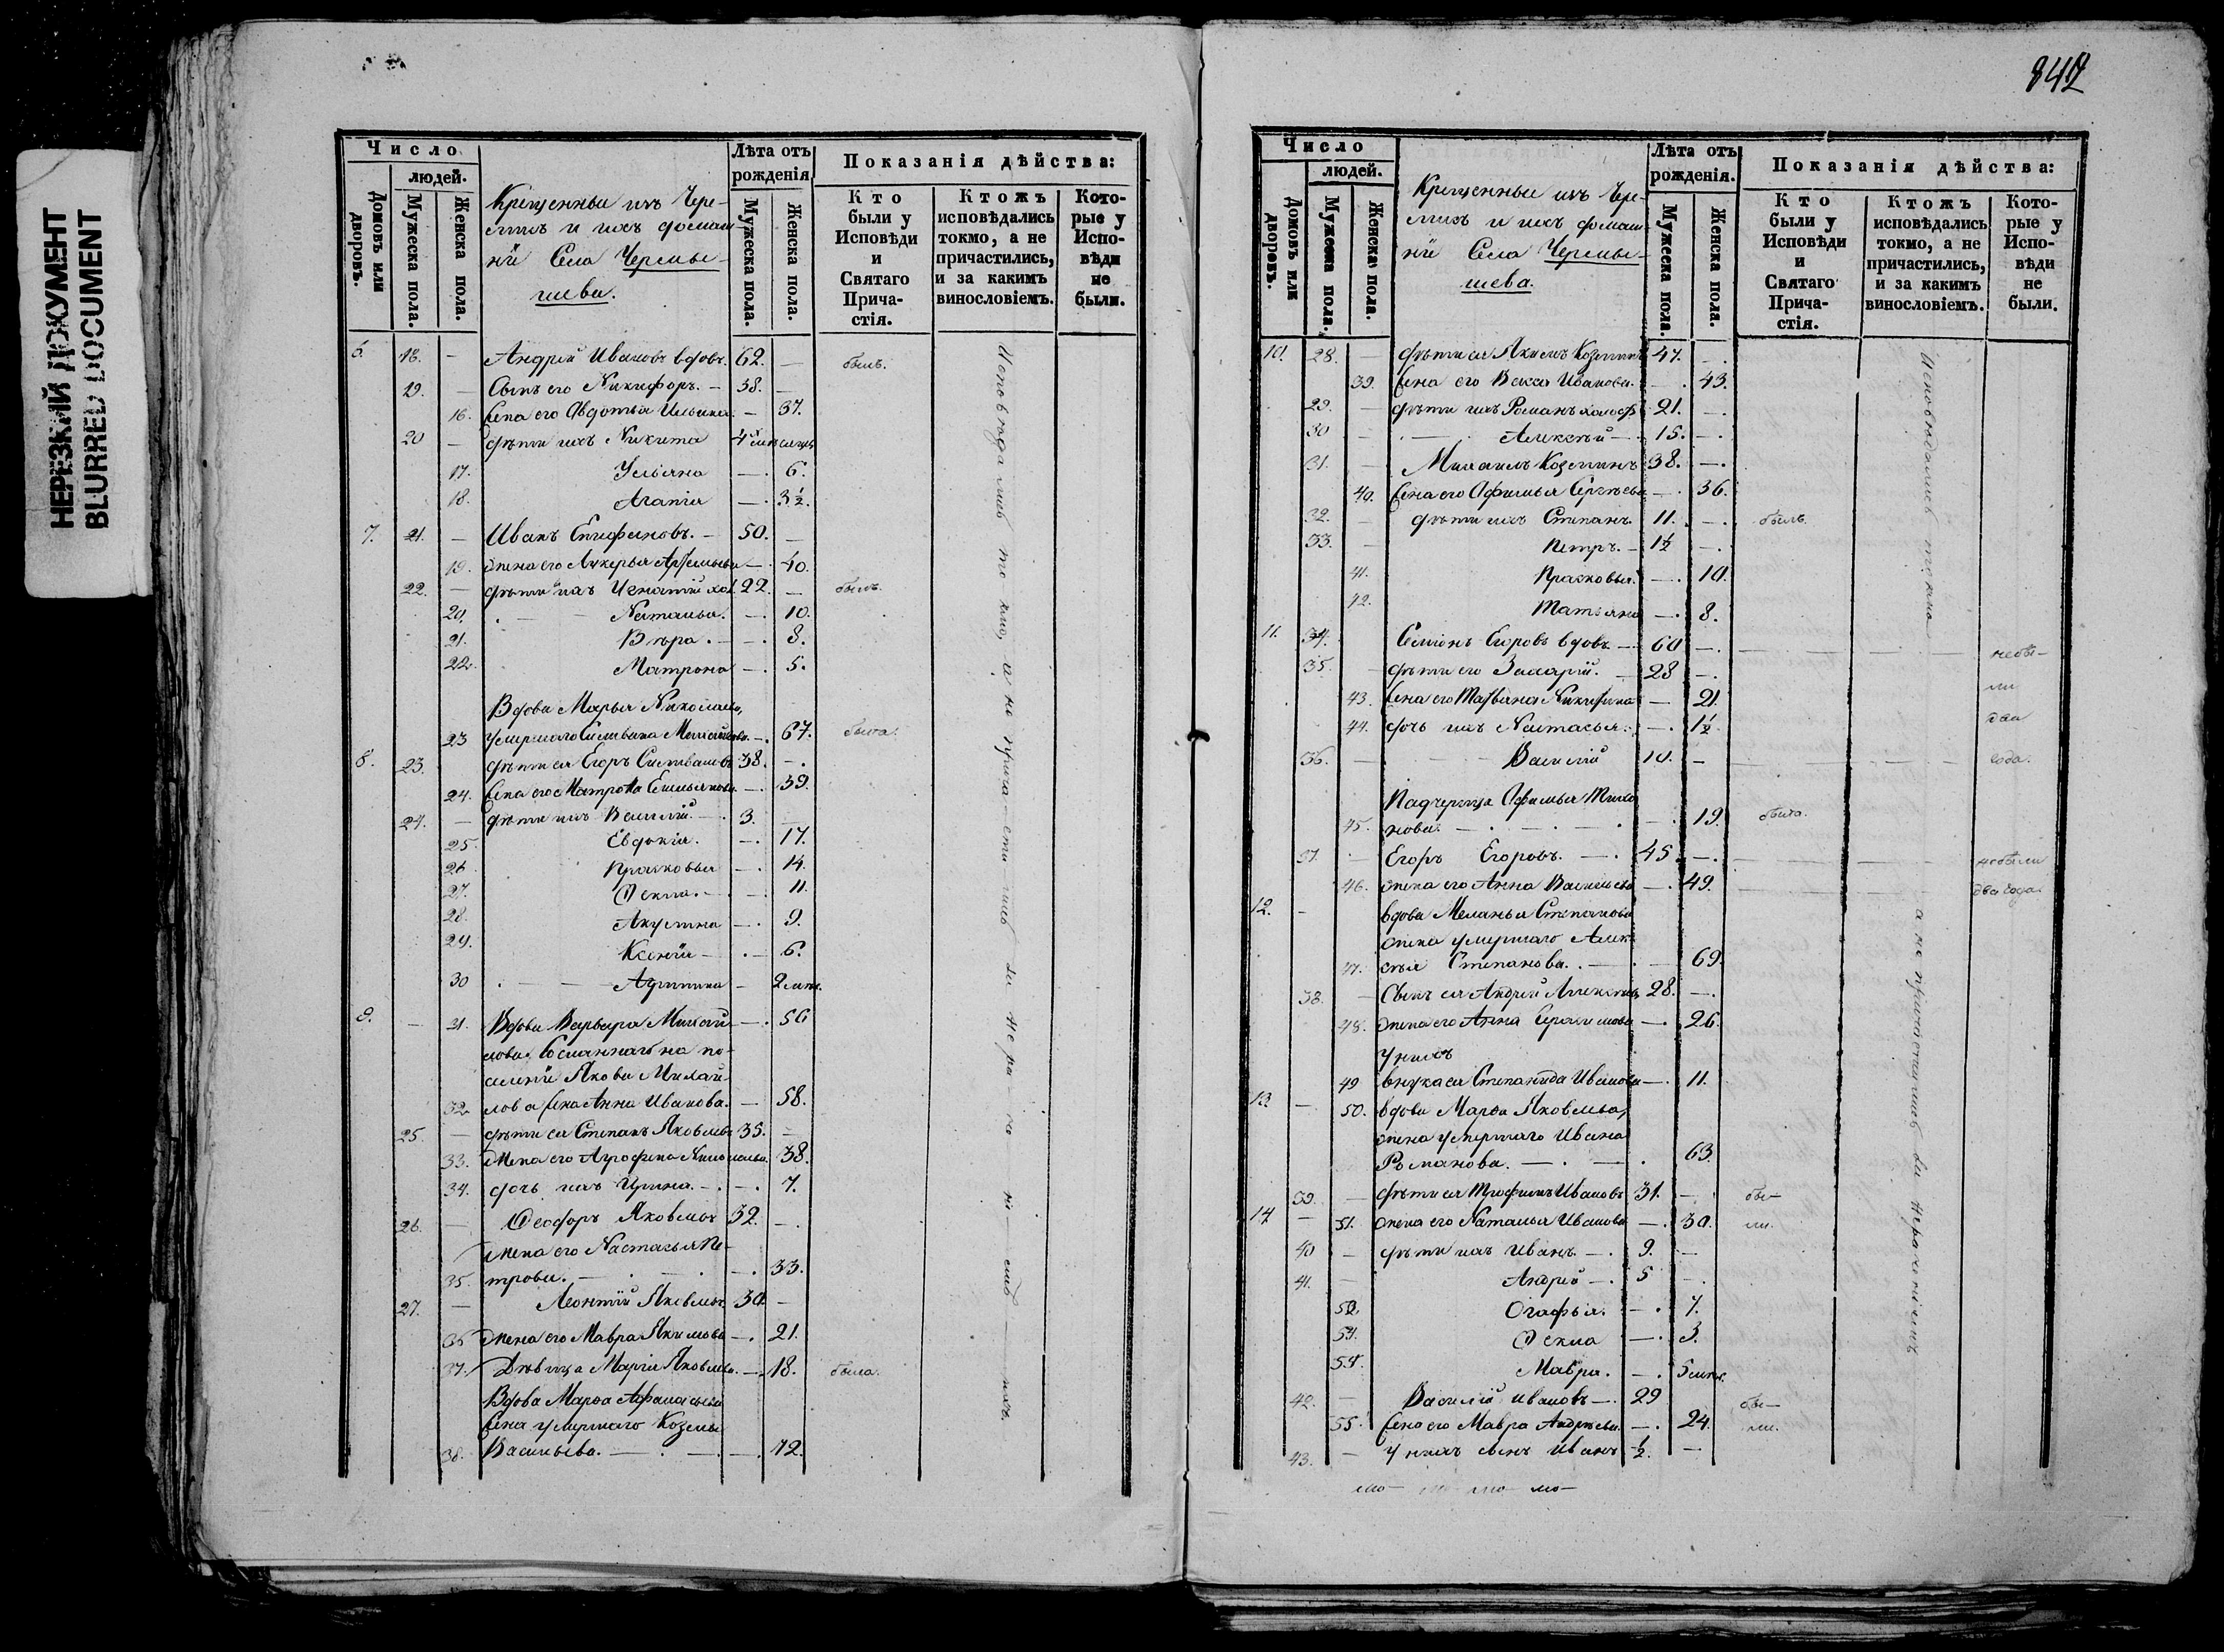 НЕРЕЗКИЙ ДОКУМЕНТ
BLURRED DOCUMENT
Число
людей.
Домовъ или дворовъ.
Мужеска пола.
Женска пола.
Крещенныи изъ Чере-
мисъ и ихъ домаш-
нiи Села Черемы-
шева.
Лѣта отъ рожденія
Мужеска пола.
Женска пола.
Показанія дѣйства:
Кто были у Исповѣди и Святаго Прича-стія.
Ктожъ исповѣдались токмо, а не причастились, и за какимъ винословіемъ.
Кото-рые у Испо-вѣди не были.
6. 18. — Андрей Ивановъ вдовъ. 62. — былъ.
19. — Сынъ его Никифоръ. — 38. —
16. Жена его Авдотья Ильина. — 37.
20 — дѣти ихъ Никита 4 мѣсяцъ
17. Ульяна — 6.
18. Агапія — 3½.
7. 21. — Иванъ Епифановъ. — 50. —
19. жена его Лукерья Артемьева — 40.
22. — дѣти ихъ Игнатій хол. 22. — былъ.
20. Наталья. — 10.
21. Вѣра. — 8.
22. Матрона — 5.
Вдова Марья Николаева,
23 умершаго Силивана Михайлова. — 67. была.
8. 23. дѣти ея Егоръ Силивановъ 38. —
24. Жена его Матрона Емельянова. — 39.
24. — дѣти ихъ Василій. — 3. —
25. Евдокія. — 17.
26 Прасковья — 14.
27. Ѳекла. — 11.
28. Акулина — 9.
29. Ксенія — 6.
30 — Агрипина — 2 мѣс.
9. — 31. Вдова Варвара Михай- — 56
лова. Сосланнаго на по-
селеніе Якова Михай-
32. лова жена Анна Иванова. — 58.
25. — дѣти ея Степанъ Яковлевъ 35. —
33. Жена его Агрофена Николаева. 38.
34. дочь ихъ Ирина. — 7.
26. — Ѳеодоръ Яковлевъ 32. —
жена его Настасья Пе-
35. трова. — 33.
27. — Леонтій Яковлевъ 30 —
36 Жена его Мавра Якимова — 21.
37. Дѣвица Марія Яковлева. — 18. была.
Вдова Марѳа Афанасьева
жена умершаго Козьмы
38. Васильева. — 72.
Исповѣдались токмо, а не причастились за нераченіемъ
847
Число
людей.
Домовъ или дворовъ.
Мужеска пола.
Женска пола.
Крещенныи изъ Чере-
мисъ и ихъ домаш-
нiи Села Черемы-
шева.
Лѣта отъ рожденія.
Мужеска пола.
Женска пола.
Показанія дѣйства:
Кто были у Исповѣди и Святаго Прича-стія.
Ктожъ исповѣдались токмо, а не причастились, и за какимъ винословіемъ.
Кото-рые у Испо-вѣди не были.
10. 28. — дѣти ея Якимъ Козминъ 47. —
39. Жена его Васса Иванова. — 43.
29. — дѣти ихъ Романъ холост 21. —
30 — Алексѣй — 15. —
31. — Михаилъ Козминъ 38. —
40. Жена его Афимья Сергѣева — 36.
32. — дѣти ихъ Степанъ. 11. — былъ.
33. — Петръ. — 1½ —
41. Прасковья. — 10.
42. Татьяна — 8.
11. 34. Семіонъ Егоровъ вдовъ — 60 — небы-
35. дѣти его Захарій. — 28 — ли
43. Жена его Татьяна Никитина — 21.
44. дочь ихъ Настасья. — 1½ два
36. — Василій 10. — года.
Падчерица Афимья Тихо-
45. нова. — 19. была.
37. — Егоръ Егоровъ. — 45. — небыли
46. жена его Анна Васильева — 49. два года.
12. — вдова Меланья Степанова
жена умершаго Алек-
47. сѣя Степанова. — 69.
38. — Сынъ ея Андрей Алексѣевъ 28. —
48. жена его Анна Герасимова — 26.
у нихъ
49 внука ея Степанида Иванова — 11.
13. — 50. вдова Марѳа Яковлева,
жена умершаго Ивана
Романова. — 63.
39. — дѣти ея Трофимъ Ивановъ 31. — бы-
14 — 51. жена его Наталья Иванова — 30. ли.
40 — дѣти ихъ Иванъ. — 9. —
41. — Андрей — 5 —
52. Огафья. — 7.
53. Ѳекла — 3.
54. Мавра. — 5 мѣс.
42. — Василій Ивановъ — 29 бы-
55. Жена его Мавра Андреева. — 24. ли.
43. — у нихъ сынъ Иванъ ½. —
Исповѣдались токмо а не причастились за нераченіемъ